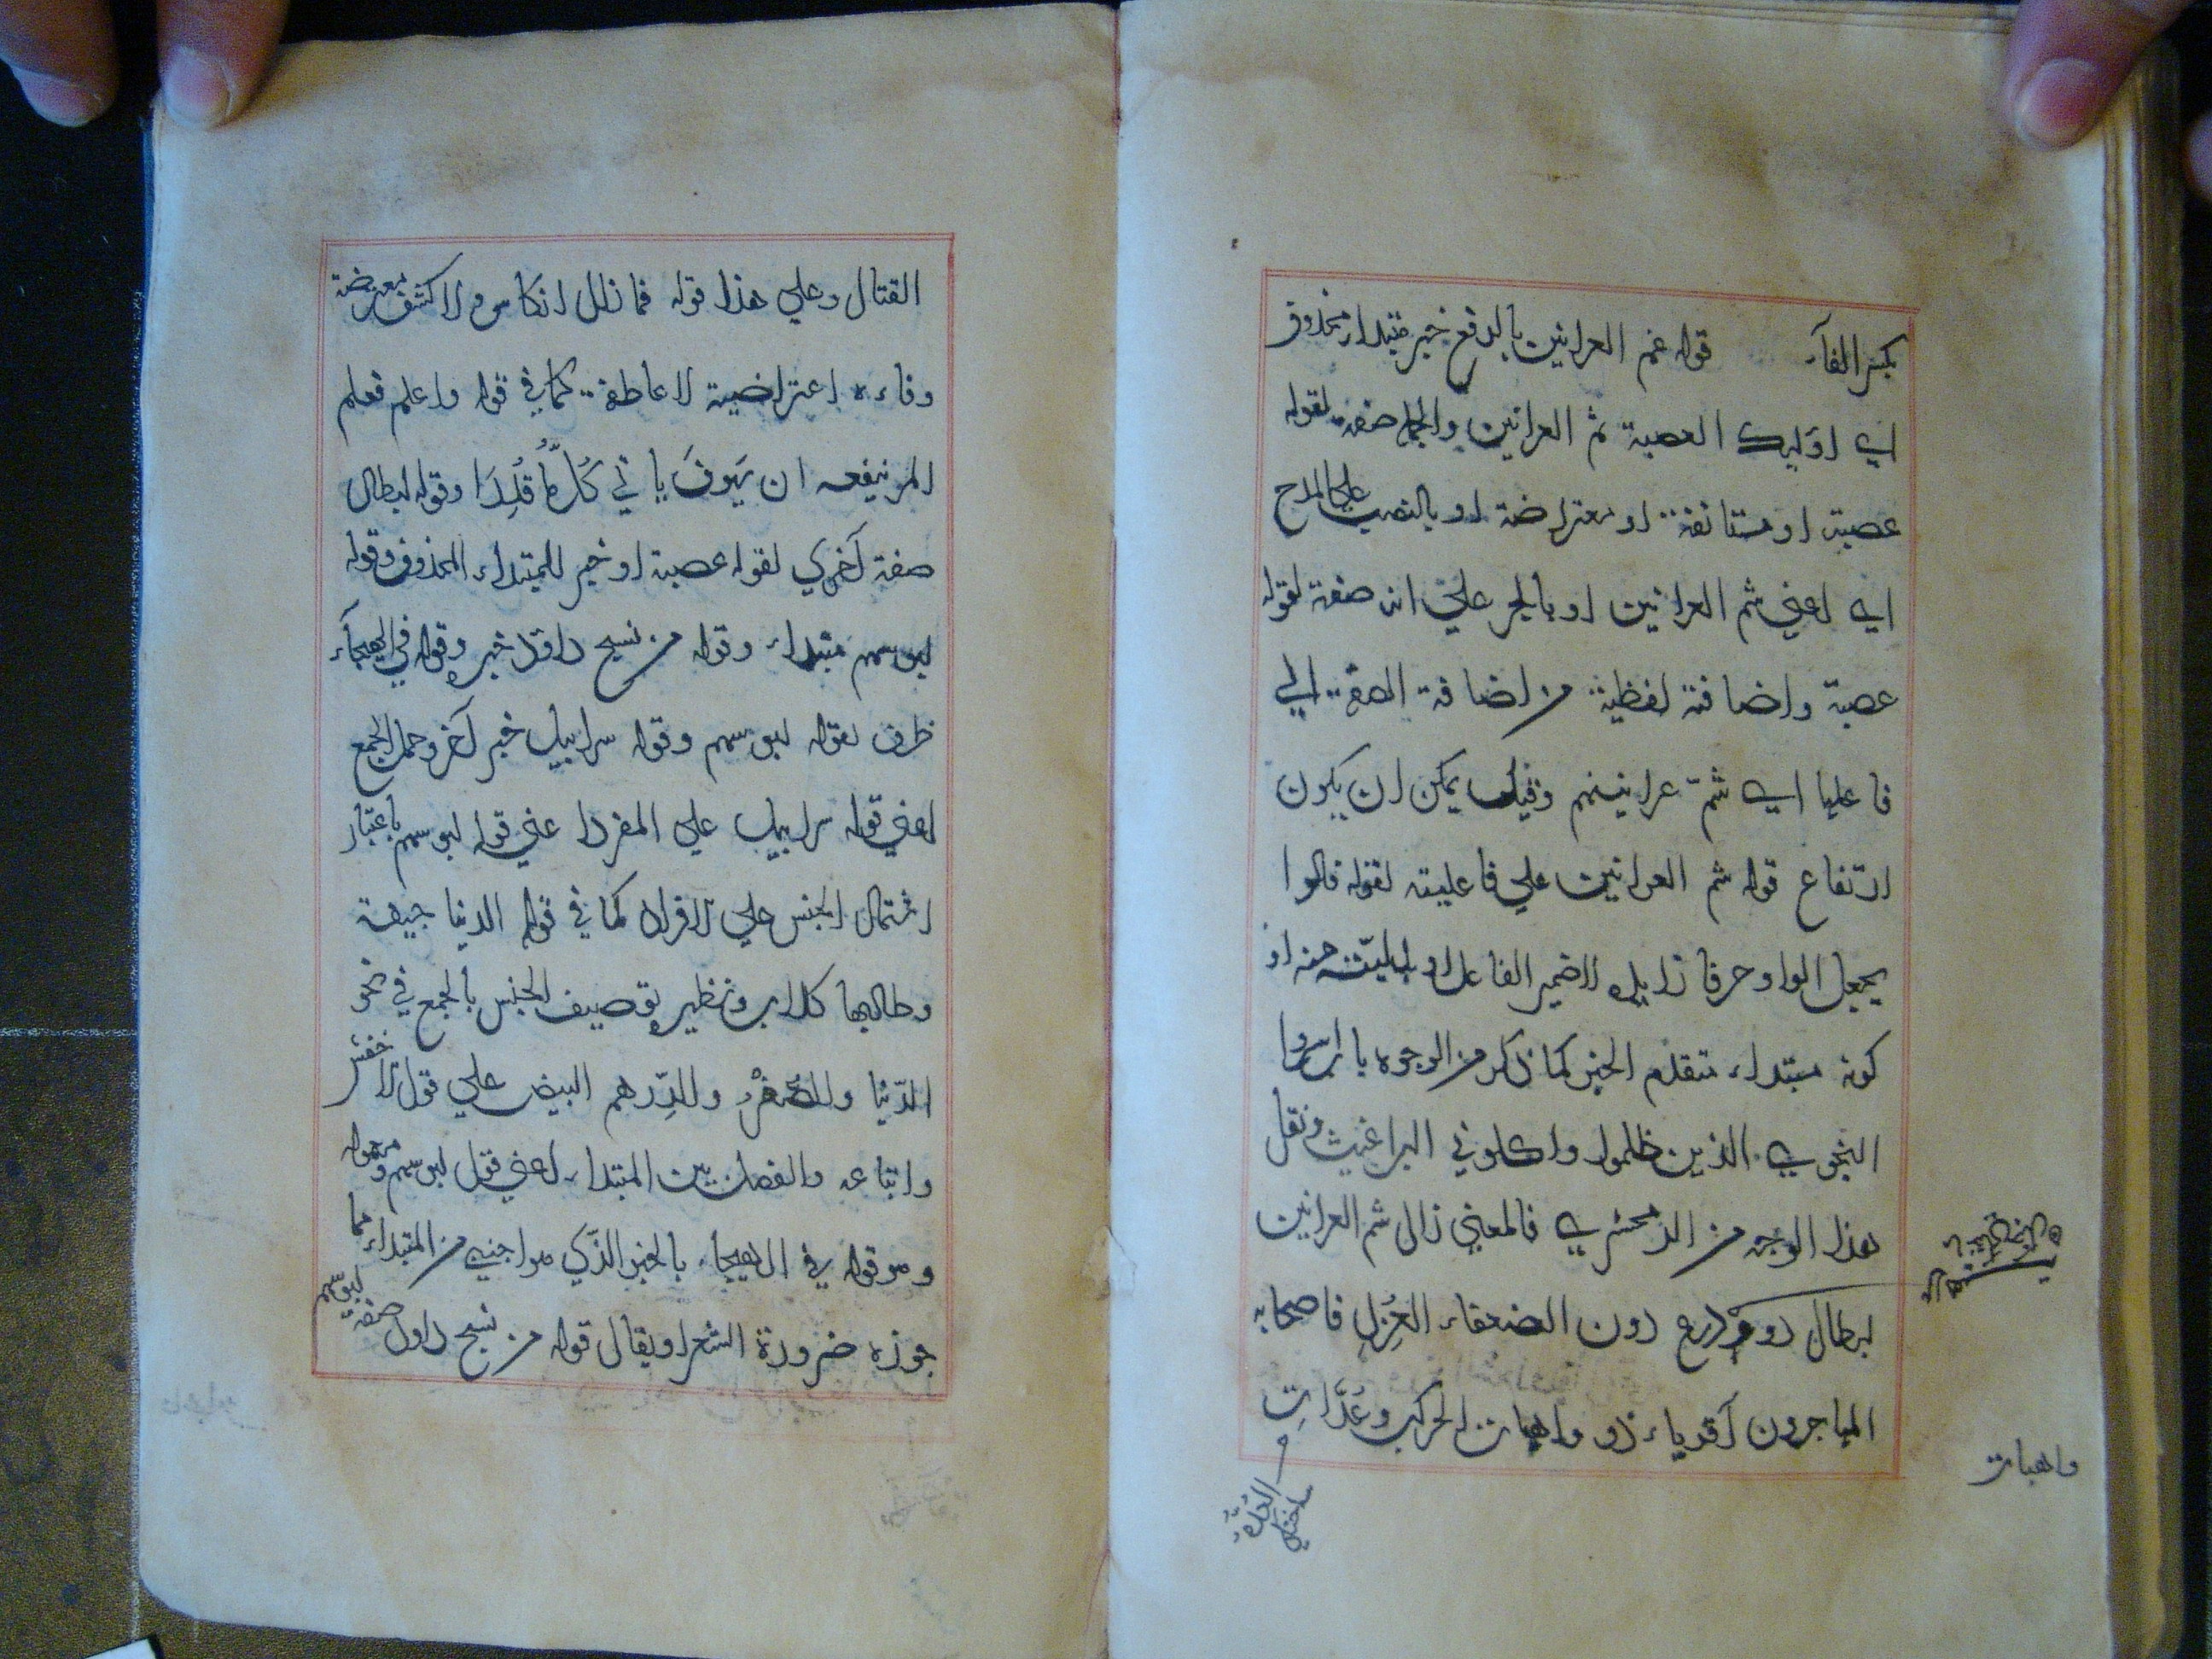 بكسر الفآء قوله شم العرانين بالرفع خبر مبتداء محذوف
اي اوليك العصبة شم العرانين والجملة صفة لقوله
عصبة او مستانفة او معترضة او بالنصب علي المدح
اي اعني شم العرانين او بالجر علي انه صفة لقوله
عصبة واضافته لفظية من اضافة الصفة الي
فاعلها اي شمّ عرانينهم وقيل يمكن ان يكون
ارتفاع قوله شم العرانين علي فاعليته لقوله فالوا
بجعل الواو حرفا زايدا لا ضمير الفاعل او بدليته منه او
كونه مبتداء متقدم الخبر كما ذكر من الوجوه باب اسروا
النجوي الذين ظلموا واكلوني البراغيث ونقل
هذا الوجه من الزمخشري فالمعني زال شم العرانين
ابطال ذوو درع دون الضعفاء العُزُل فاصحابه
المهاجرون اقوياء ذو واهبات الحرب وعُدَّاتِ
واهبات
القتال وعلي هذا قوله فما زال انكاس ولا كشف معترضة
وفاءه اعتراضية لا عاطفة كما في قوله واعلم فعلم
المرء ينفعه ان سَوفَ ياتي كُلُّ ما قُدِرَا وقوله ابطال
صفة اخري لقوله عصبة او خبر للمبتداء المحذوف وقوله
لبوسهم مبتداء وقوله من نسج داود خبره وقوله في الهيجآء
ظرف لقوله لبوسهم وقوله سرابيل خبر آخر وحمل الجمع
اعني قوله سرابيل علي المفرد اعني قوله لبوسهم باعتبار
اشتمال الجنس علي الافراد كما في قوله الدنيا جيفة
وطالبها كلاب ونظيره توصيف الجنس بالجمع في نحو
الدّينار الصُفْر والدِّرهم البيض علي قول الاخفش
واتباعه والفصل بين المبتداء اعني قول لبوسهم ومعموله
وهو قوله في الهيجاء بالخبر الذّي هو اجنبي من المبتداء مما
جوزه ضرورة الشعر او يقال قوله من نسج داود صفة لبوسهم